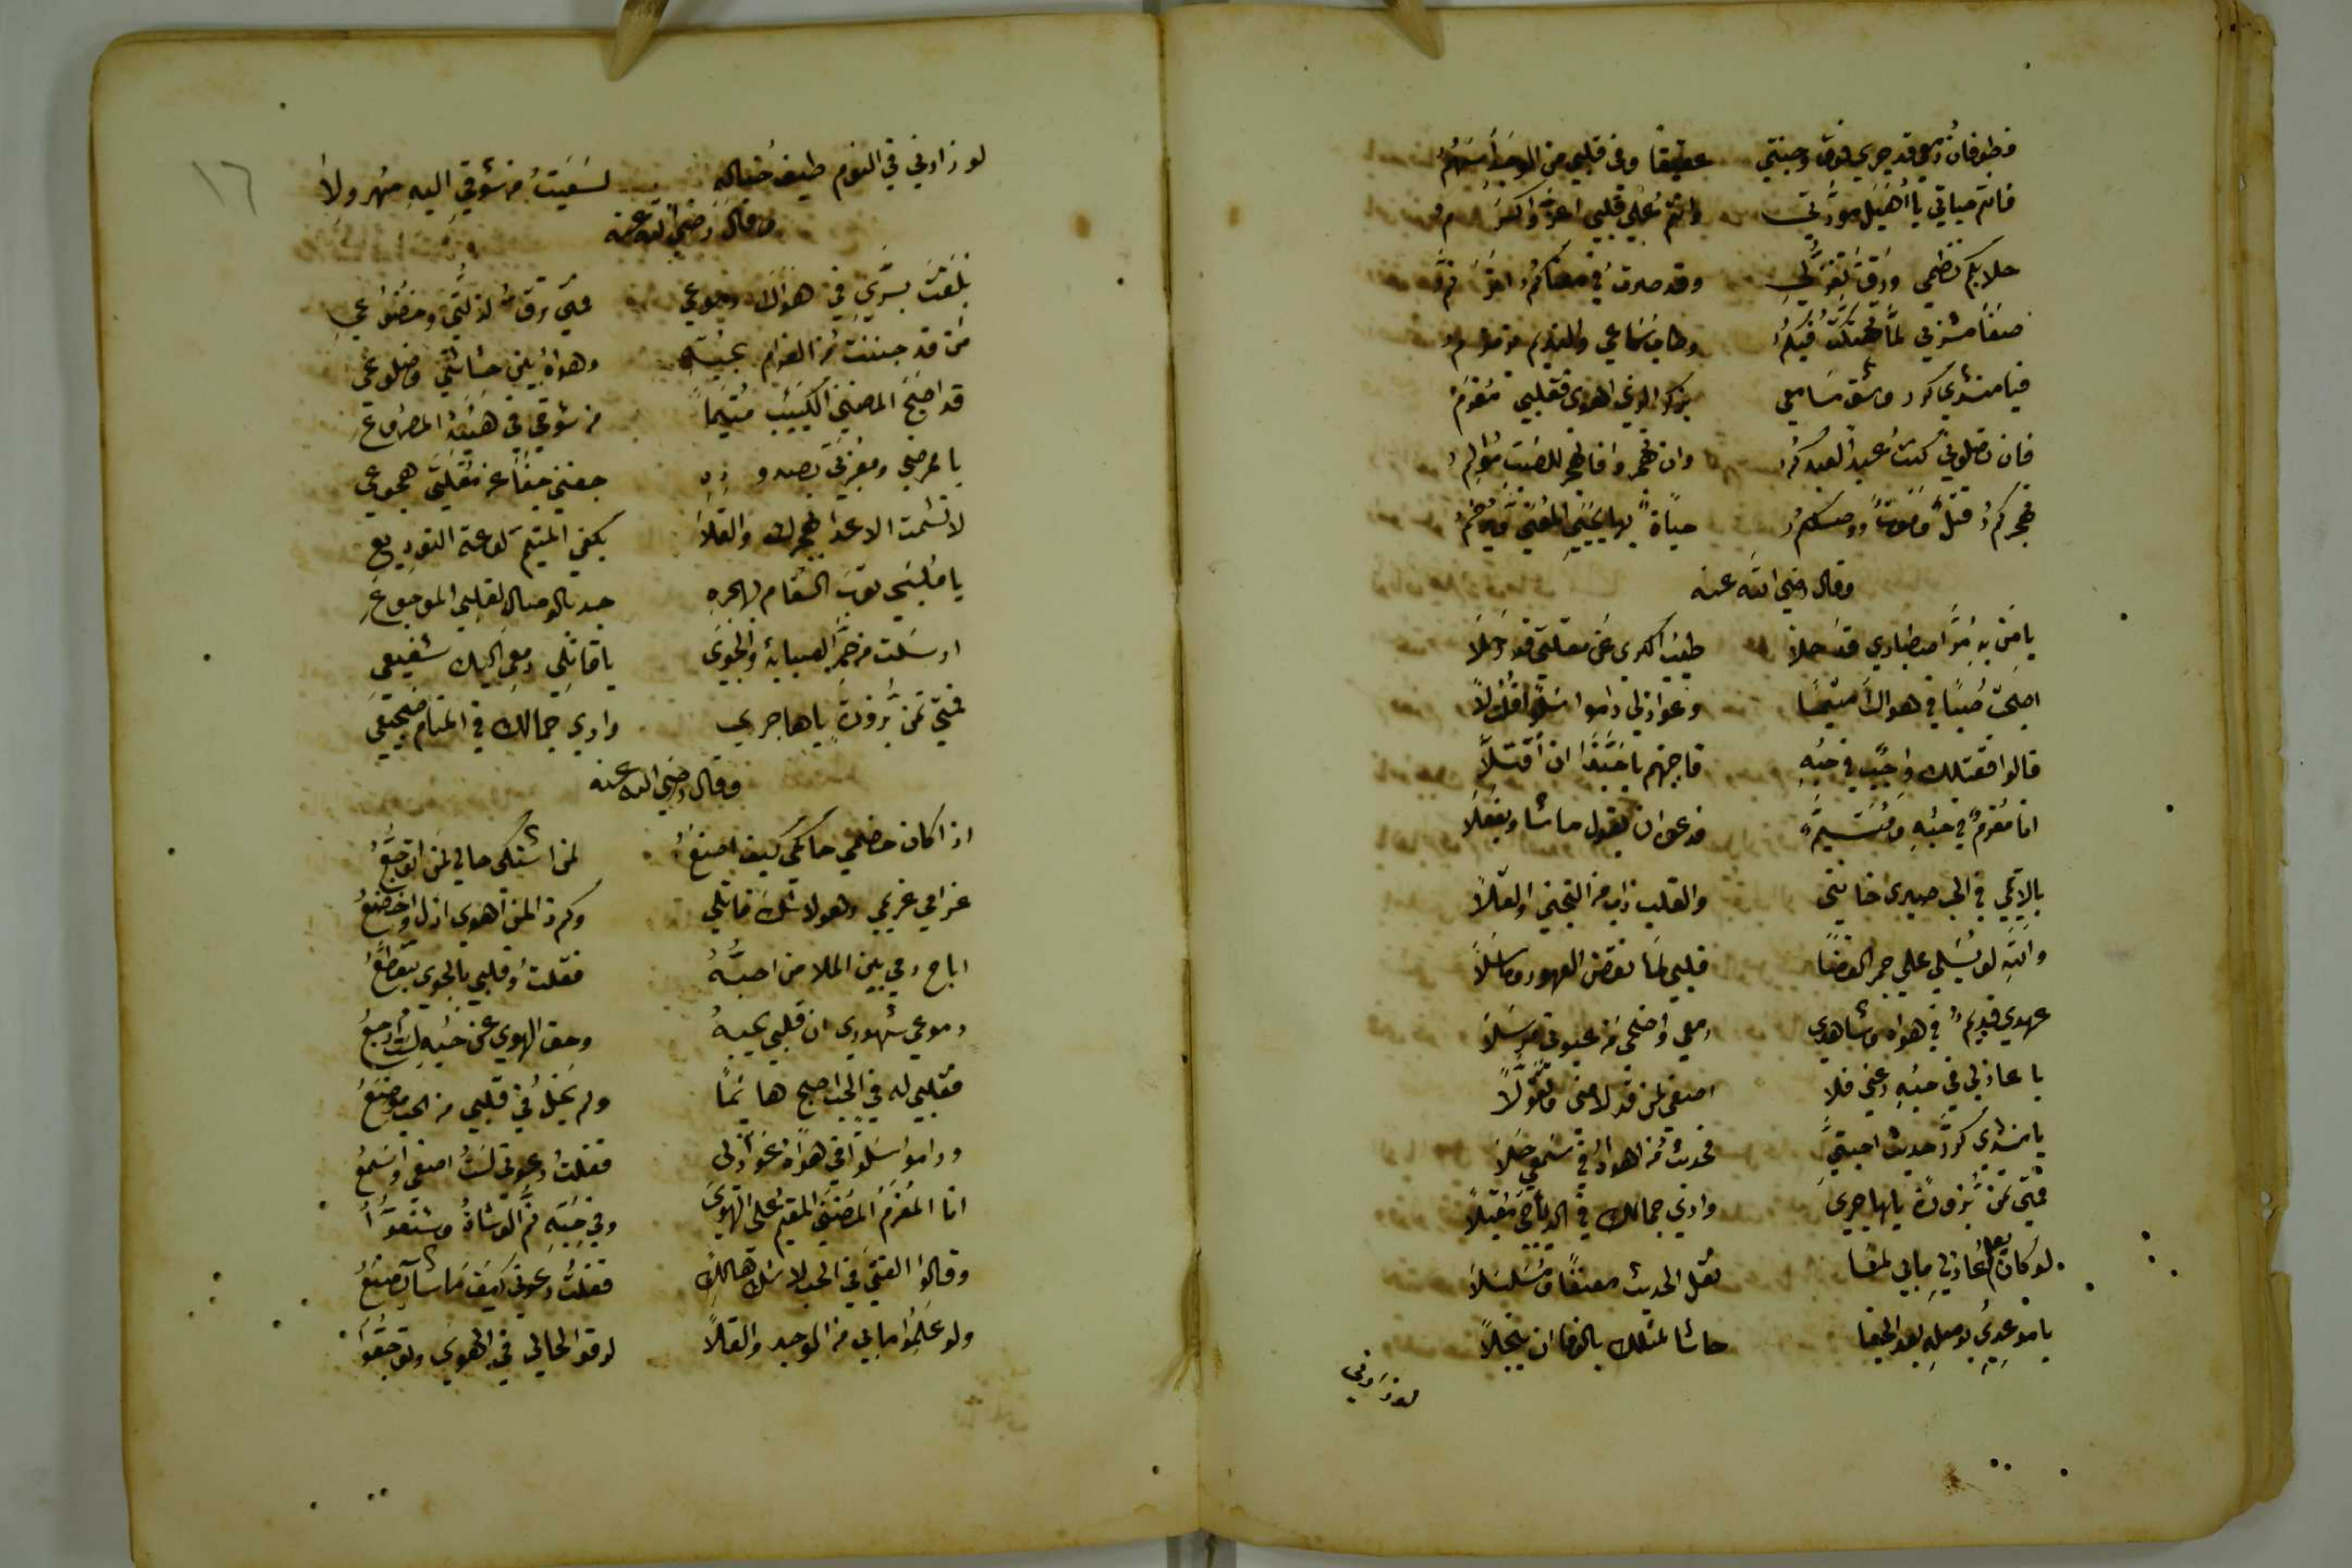 فطوفان دمعي قد جري فوق وجنتي عقيقا وفي قلبي من الوجد أسهم
فانتم حياتي يا أهيل مودتي وانتم علي قلبي اعز واكرم
حلا بكم نظمي ورق تغزلي وقد صرت في معناكم اترنم
صفا مشربي لما تهتكت فيكم وطاب سماعي والنديم
فيا منشدي كرر وشق مسامعي بذكر الذي اهوى فقلبي مغرم
فان تصلوني كنت عبدا لعبدكم وان تهجروا فالهجر للصب مؤلم
فهجركم قتل وموت ووصلكم حياة بها يحيي المعني
وقال رضي الله عنه
يا من به مر اصطباري قد حلا طيب الكرى عن مقلتي قد رحلا
اضحيت صبا في هواك متيما وعواذلي راموا سلوا قلت لا
قالوا فقتلك واجب في حبه فاجبتهم يا حبذا ان أقتلا
انا مغرم في حبه ومتيم فدعوه ان يقول ما شا ويفعلا
يا لائمي في الحب صبري خانني والقلب ذاب من التجني والقلا
والله لو يسلي علي جمر الغضا قلبي لما نقض العهود وما سلا
عهدي قديم في هواه وشاهدي دمعي واضحي من عيوني مرسلا
يا عاذلي في حبه دعني فلا اصغي لمن قد لامني وتقولا
يا منشدي كرر حديث احبتي فحديث من اهواه في سمعي حلا
فمتي تمن بزورة يا هاجري واري جمالك في الدياجي مقبلا
لو كان يعلم عاذلي ما بي لما نقل الحديث معنفا ومسلسلا
يا موعدي بوصله بعد الجفا حاشا لمثلك بالوفا ان يبخلا
لو زارني
١٦
لو زارني في النوم طيف خياله لسعيت من شوقي اليه مهرولا
وقال رضي الله عنه
بلغت بسري في هواك دموعي فمتي ترق لذلتي وخضوعي
من قد جننت من الغرام بحبه وهواه بين حشاشتي وضلوعي
قد اضحى المضني الكئيب متيما من شوقي في هيئة المصروع
يا ممرضي ومعذبي بصدوده جفني جفا عن مقلتي هجوعي
لا تشمت الاعدا بهجرك والقلا يكفي المتيم لوعة التوديع
يا ملبسي ثوب السقام بهجره جد بالوصال لقلبي الموجوع
ارسلت من حر الصبابة والجوى يا قاتلي دمعي اليك شفيعي
فمتي تمن بزورة يا هاجري واري جمالك في المنام ضجيعي
وقال رضي الله عنه
اذا كان خصمي حاكمي كيف اصنع لمن اشتكى حالي لمن اتوجع
غرامي غريمي وهو لا شك قاتلي وكم ذا لمن اهوى اذل واخضع
اباح دمي بين الملا من احبه فقلت وقلبي بالجوى يتقطع
دموعي شهودي ان قلبي يحبه وحق الهوي عن حبه لست ارجع
فقلبي له في الحب اصبح هائما ولم يخل في قلبي من الحب موضع
وراموا سلوا في هواه عواذلي فقلت دعوني لست اصغي واسمع
انا المغرم المضنى المقيم على الهوى وفي حبه نم الوشاة وشنعوا
وقالوا الفتى في الحب لا شك هالك فقلت دعوني كيف ما شا يصنع
ولو علموا ما بي من الوجد والقلا لرقوا لحالي في الهوى وتوجعوا